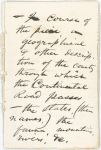 — In course of
the piece a
geographical
or other descrip-
tion of the country
through which
the Continental
Road passes
— the states (their
names) the
farms, mountains,
rivers, &c.